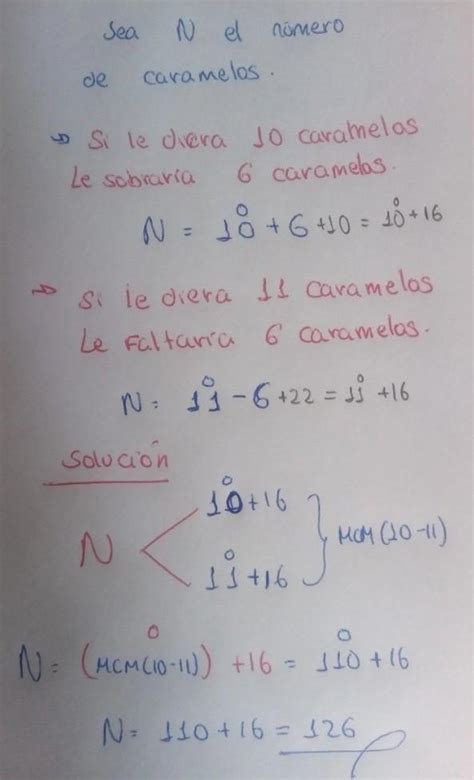 Sea N el número
de caramelos.
→ Si le diera 10 caramelos
Le sobraría 6 caramelos.
N = 1̊0 + 6 + 10 = 1̊0 + 16
→ Si le diera 11 caramelos
Le Faltaría 6 caramelos.
N = 1̊1 - 6 + 22 = 1̊1 + 16
Solución
1̊0 + 16
N < } MCM (10-11)
1̊1 + 16
N = (MCM(10-11))° + 16 = 11̊0 + 16
N = 110 + 16 = 126